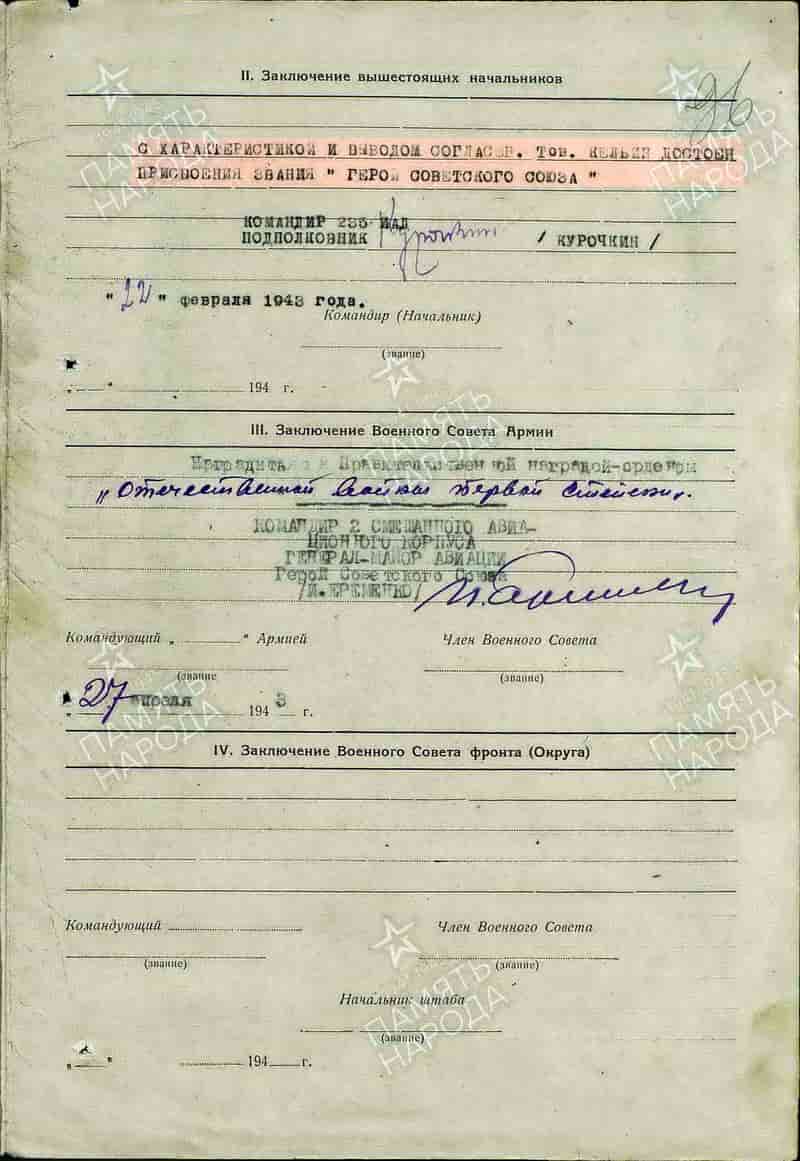 96
II. Заключение вышестоящих начальников
С ХАРАКТЕРИСТИКОЙ И ВЫВОДОМ СОГЛАСЕН. Тов. ДОСТОЕН
ПРИСВОЕНИЯ ЗВАНИЯ " ГЕРОЙ СОВЕТСКОГО СОЮЗА "
КОМАНДИР 235 ИАД
ПОДПОЛКОВНИК / КУРОЧКИН /
" " февраля 1943 года.
Командир (Начальник)
(звание)
„ " 194 г.
III. Заключение Военного Совета Армии
Наградить Правительственной наградой-орденом
„Отечественной Войны первой степени".
КОМАНДИР 2 СМЕШАННОГО АВИА-
ЦИОННОГО КОРПУСА
ГЕНЕРАЛ-МАЙОР АВИАЦИИ
Герой Советского Союза
/И.ЕРЕМЕНКО/
Командующий „ " Армией Член Военного Совета
(звание (звание)
„27 194 3 г.
IV. Заключение Военного Совета фронта (Округа)
Командующий Член Военного Совета
(звание) (звание)
Начальник штаба
(звание)
„ " 194 г.
ПАМЯТЬ
НАРОДА
ПАМЯТЬ
НАРОДА
ПАМЯТЬ
НАРОДА
ПАМЯТЬ
НАРОДА
ПАМЯТЬ
НАРОДА
ПАМЯТЬ
НАРОДА